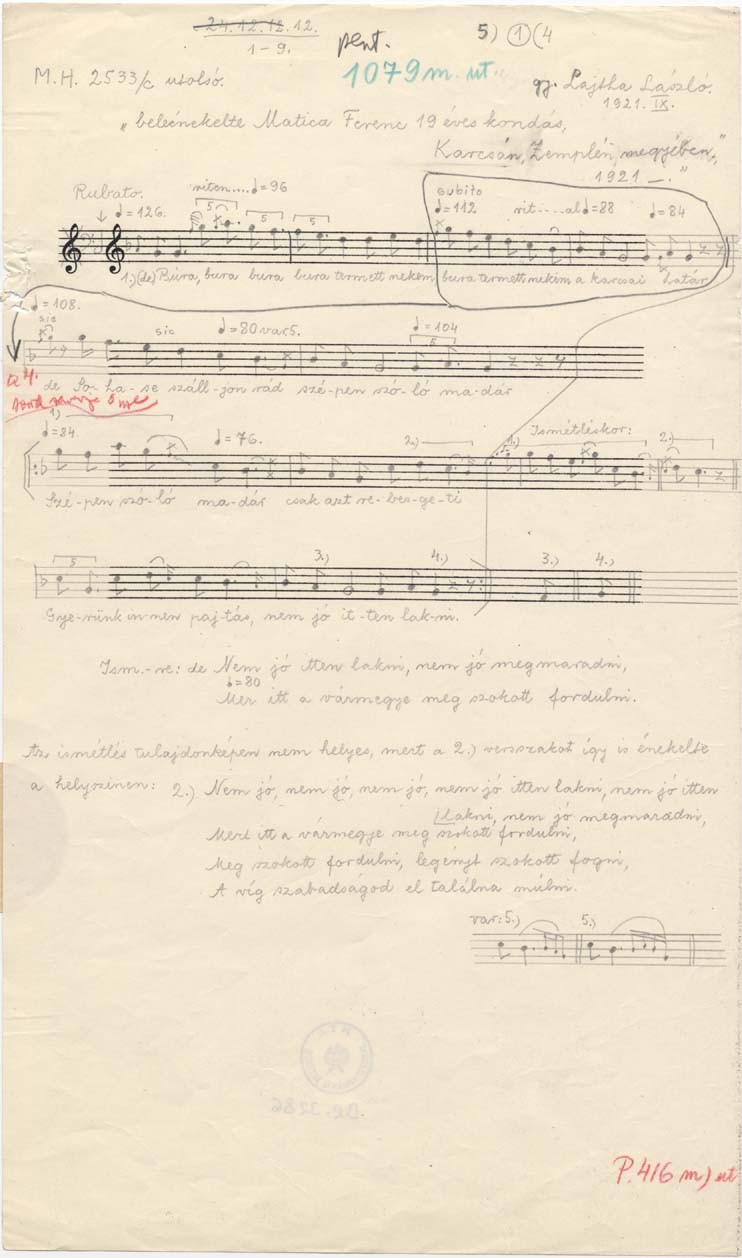 24.12.12.12.
1-9.
pent.
5) 1 (4
M.H. 2533/c utolsó.
1079 m. ut.
gy. Lajtha László.
1921. IX.
"beleénekelte Matica Ferenc 19 éves kondás,
Karcsán, Zemplén megyében,"
1921 —."
Rubato. ♩=126. riten.... ♩=96 subito ♩=112 rit----al ♩=88 ♩=84
5 5 5
1.) (de) Búra, bura bura bura termett nékem bura termett nekem a karcsai határ
♩=108.
sic sic ♩=80 var 5. ♩=104
5
de So-ha-se száll-jon rád szé-pen szó-ló ma-dár
a 4.
1)
♩=84. ♩=76. 2.) 1.) Ismétléskor: 2.)
Szé-pen szó-ló ma-dár csak azt re-bes-ge-ti
5 3.) 4.) 3.) 4.)
Gye-rünk in-nen paj-tás, nem jó it-ten lak-ni.
Ism.-re: de Nem jó itten lakni, nem jó megmaradni,
♩=80
Mer itt a vármegye meg szokott fordulni.
Az ismétlés tulajdonképen nem helyes, mert a 2.) versszakot így is énekelte
a helyszinen: 2.) Nem jó, nem jó, nem jó, nem jó itten lakni, nem jó itten
lakni, nem jó megmaradni,
Mert itt a vármegje meg szokott fordulni,
Meg szokott fordulni, legényt szokott fogni,
A víg szabadságod el találna múlni.
var: 5.) 5.)
Br. 3286
P. 416 m) ut